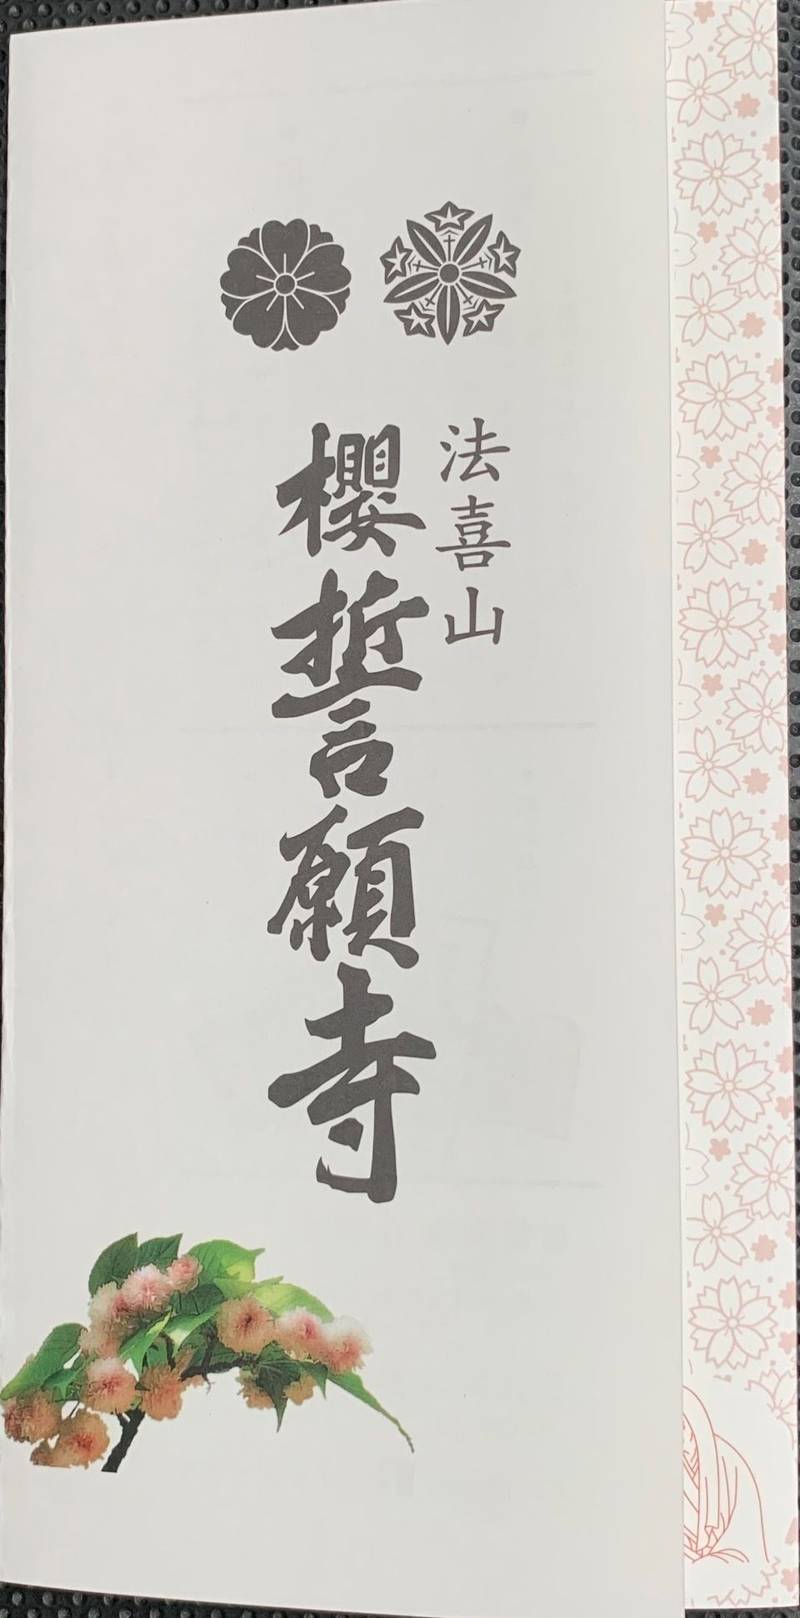 法喜山
櫻誓願寺